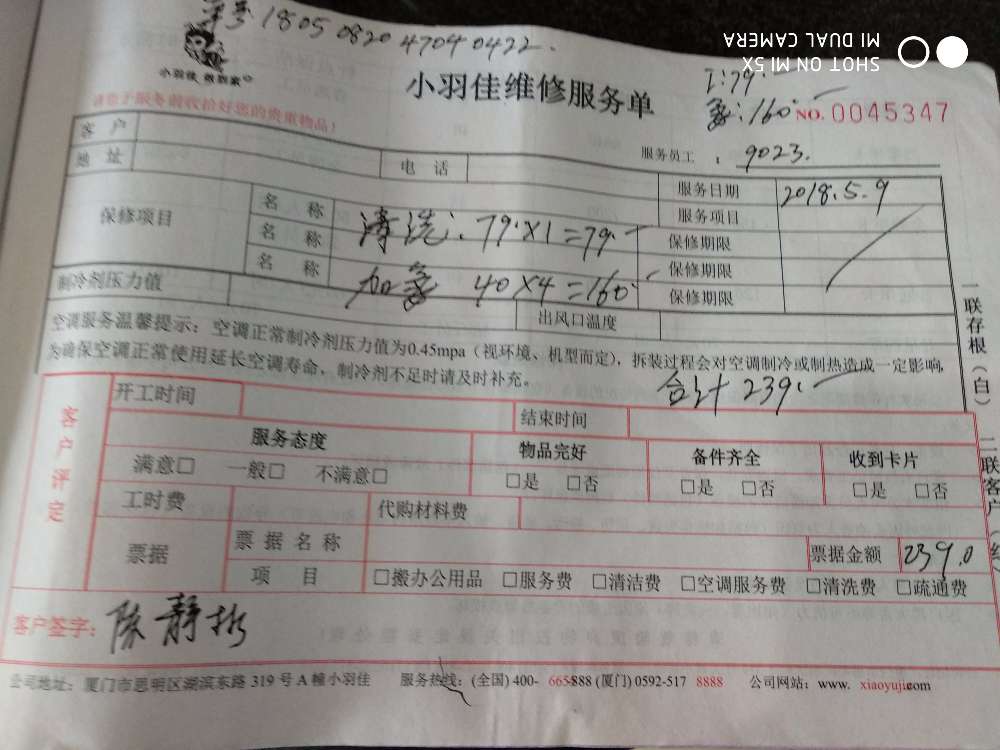 单号 1805 0820 4704 0422.
SHOT ON MI 5X
MI DUAL CAMERA
小羽佳
小羽佳维修服务单
工:79.
氟:160.
NO. 0045347
请您于服务前收拾好您的贵重物品!
服务员工 : 9023.
客 户
地 址
电 话
服务日期 2018.5.9
保修项目
名 称
服务项目
名 称 清洗: 79×1=79.
保修期限
名 称
保修期限
加氟 40×4=160.
保修期限
制冷剂压力值
出风口温度
空调服务温馨提示:空调正常制冷剂压力值为0.45mpa(视环境、机型而定),拆装过程会对空调制冷或制热造成一定影响,
为确保空调正常使用延长空调寿命,制冷剂不足时请及时补充。
合计 239.
一联存根(白)
二联客户
客户评定
开工时间
结束时间
服务态度
物品完好
备件齐全
收到卡片
满意□ 一般□ 不满意□
□是 □否
□是 □否
□是 □否
工时费
代购材料费
票据
票据名称
票据金额 239.0
项 目
□搬办公用品 □服务费 □清洁费 □空调服务费 □清洗费 □疏通费
客户签字: 陈静
公司地址:厦门市思明区湖滨东路 319 号 A 幢小羽佳 服务热线:(全国) 400- 665888 (厦门) 0592-517 8888 公司网站:www. xiaoyujia.com